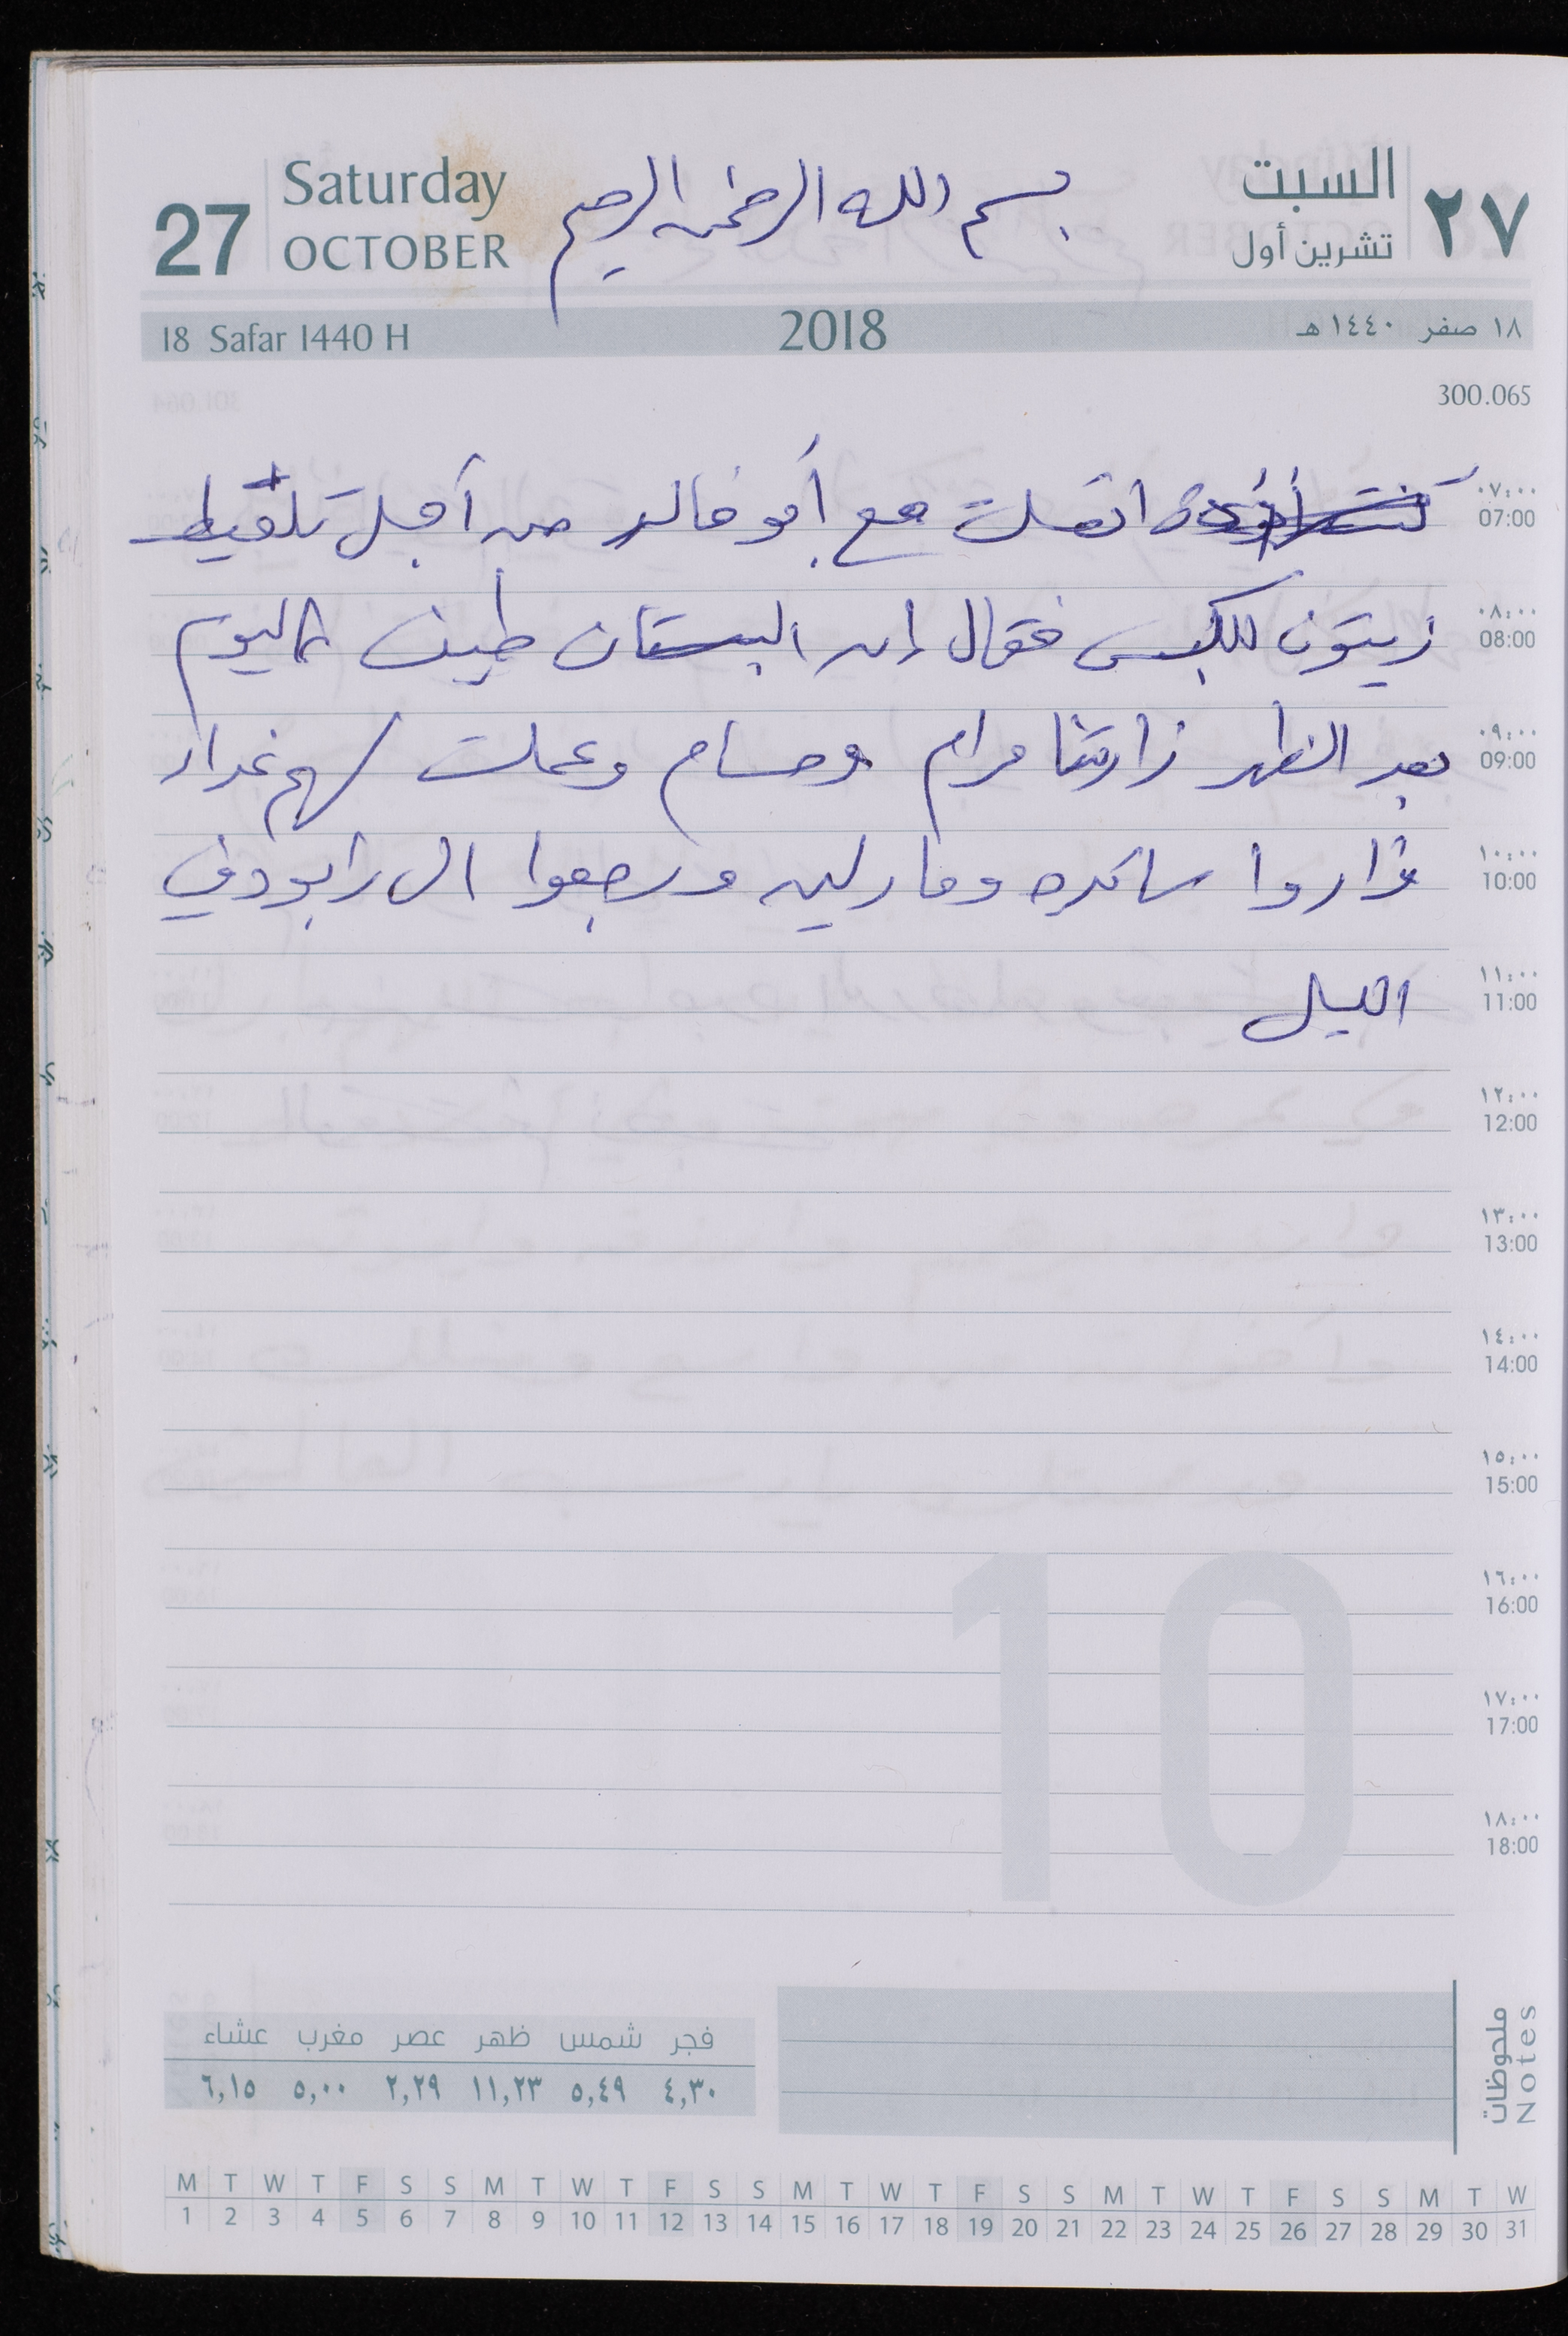 السبت ٢٧
تشرين أول
Saturday 27
OCTOBER
بسم الله الرحمن الرحيم
١٨ صفر ١٤٤٠ هـ
2018
18 Safar 1440 H
300.065
٠٧:٠٠
07:00
اتصلت مع أبو خالد من أجل تلقيط
٠٨:٠٠
08:00
زيتون للكبيس فقال إن البستان طين اليوم
٠٩:٠٠
09:00
بعد الظهر زارتنا مرام وحسام وعملت لهم غداء
١٠:٠٠
10:00
زاروا سائده ومارلين ورجعوا الى زابود في
١١:٠٠
11:00
الليل
١٢:٠٠
12:00
١٣:٠٠
13:00
١٤:٠٠
14:00
١٥:٠٠
15:00
١٦:٠٠
16:00
١٧:٠٠
17:00
١٨:٠٠
18:00
10
ملحوظات
Notes
فجر شمس ظهر عصر مغرب عشاء
٤,٣٠ ٥,٤٩ ١١,٢٣ ٢,٢٩ ٥,٠٠ ٦,١٥
M T W T F S S M T W T F S S M T W T F S S M T W T F S S M T W
1 2 3 4 5 6 7 8 9 10 11 12 13 14 15 16 17 18 19 20 21 22 23 24 25 26 27 28 29 30 31